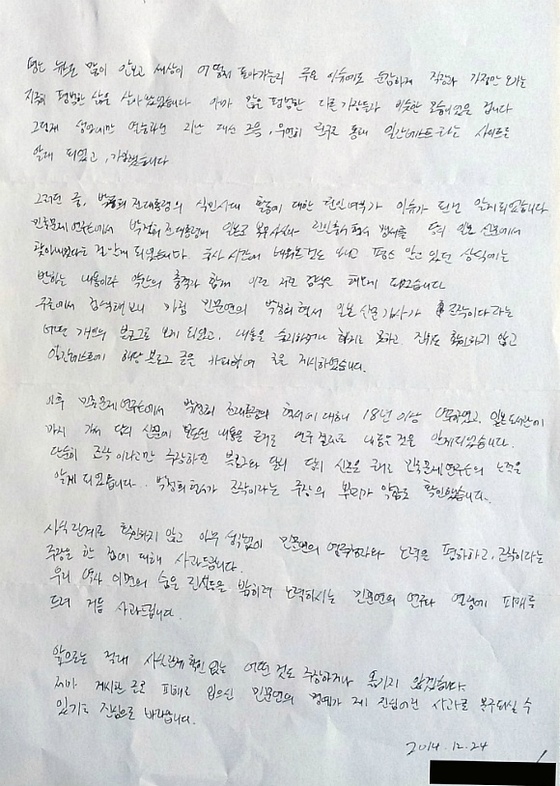 평소 뉴스도 많이 안보고 세상이 어떻게 돌아가는지 주요 이슈에도 둔감하게 직장과 가정만 오가는
지극히 평범한 삶을 살아왔었습니다. 아마 많은 평범한 다른 가장들과 비슷한 모습이었을 겁니다
그런데 지난 대선 즈음, 우연히 친구로 통해 일간베스트라는 사이트를
알게 되었고, 가입했습니다
그러던 중, 박정희 전 대통령의 식민시대 활동에 대한 친일여부가 이슈가 되던 알게되었습니다
민족문제연구소에서 박정희 전 대통령이 일본군 혈서 당시 일본 신문에서
찾아내었다는 걸 알게 되었습니다. 국사 시간에 배워본 것도 평소 알고 있던 상식에는
반하는 내용이라 약간의 충격과 함께 이런 저런 검색을 해보게 되었습니다
구글에서 검색해보니 민문연의 박정희 혈서 일본 신문 기사가 조작이다라는
개인의 블로그를 보게 되었고, 내용을 하지도 못하고 진위도 확인하지 않고
일간베스트에 해당 블로그 글을 카피하여 글을 게시하였습니다.
이후 민족문제연구소에서 박정희 전대통령의 혈서에 대해서 18년 이상 연구하였고, 일본 도서관에
까지 가서 당시 신문에 보도된 내용을 근거로 연구 결과로 내놓은 것을 알게되었습니다.
단순히 조작이라고만 주장하던 블로그와 달리 당시 신문 근거로 민족문제연구소의 노력을
알게 되었습니다. 박정희 혈서가 조작이라는 주장의 뿌리가 약함도 확인했습니다.
사실 관계를 확인하지 않고 아무 생각없이 민문연의 연구결과와 노력을 폄하하고, 조작이라는
주장을 한 점에 대해 사과드립니다.
우리 역사 이면의 숨은 진실들을 밝히려 노력하시는 민문연의 연구와 명예에 피해를
드려 거듭 사과드립니다.
앞으로는 절대 사실관계 확인 없는 어떤 것도 주장하거나 옮기지 않겠습니다.
저의 게시판 글로 피해를 입으신 민문연의 명예가 제 진심어린 사과로 복구되실 수
있기를 진심으로 바랍니다.
2014.12.24